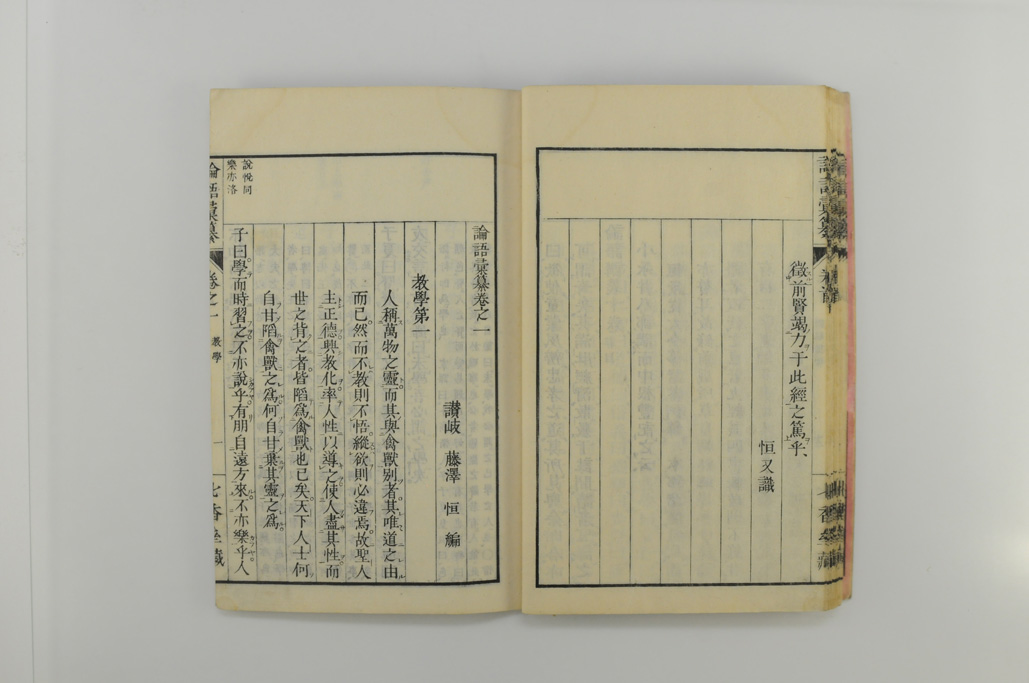 徵前賢竭力于此經之篤乎
恒又識
論語彙纂
卷首
論語彙纂卷之一
讃岐 藤澤 恒 編
教學第一
人稱萬物之靈而其與禽獸別者其唯道之由
而已然而不教則不悟縱欲則必違焉故聖人
主正德興教化率人性以導之使人盡其性而
世之背之者皆陷爲禽獸也已矣天下人士何
自甘陷禽獸之爲何自甘棄其靈之爲
說悅同
樂亦洛
子曰學而時習之不亦說乎有朋自遠方來不亦樂乎人
論語彙纂
卷之一
教學
一
七香
藏